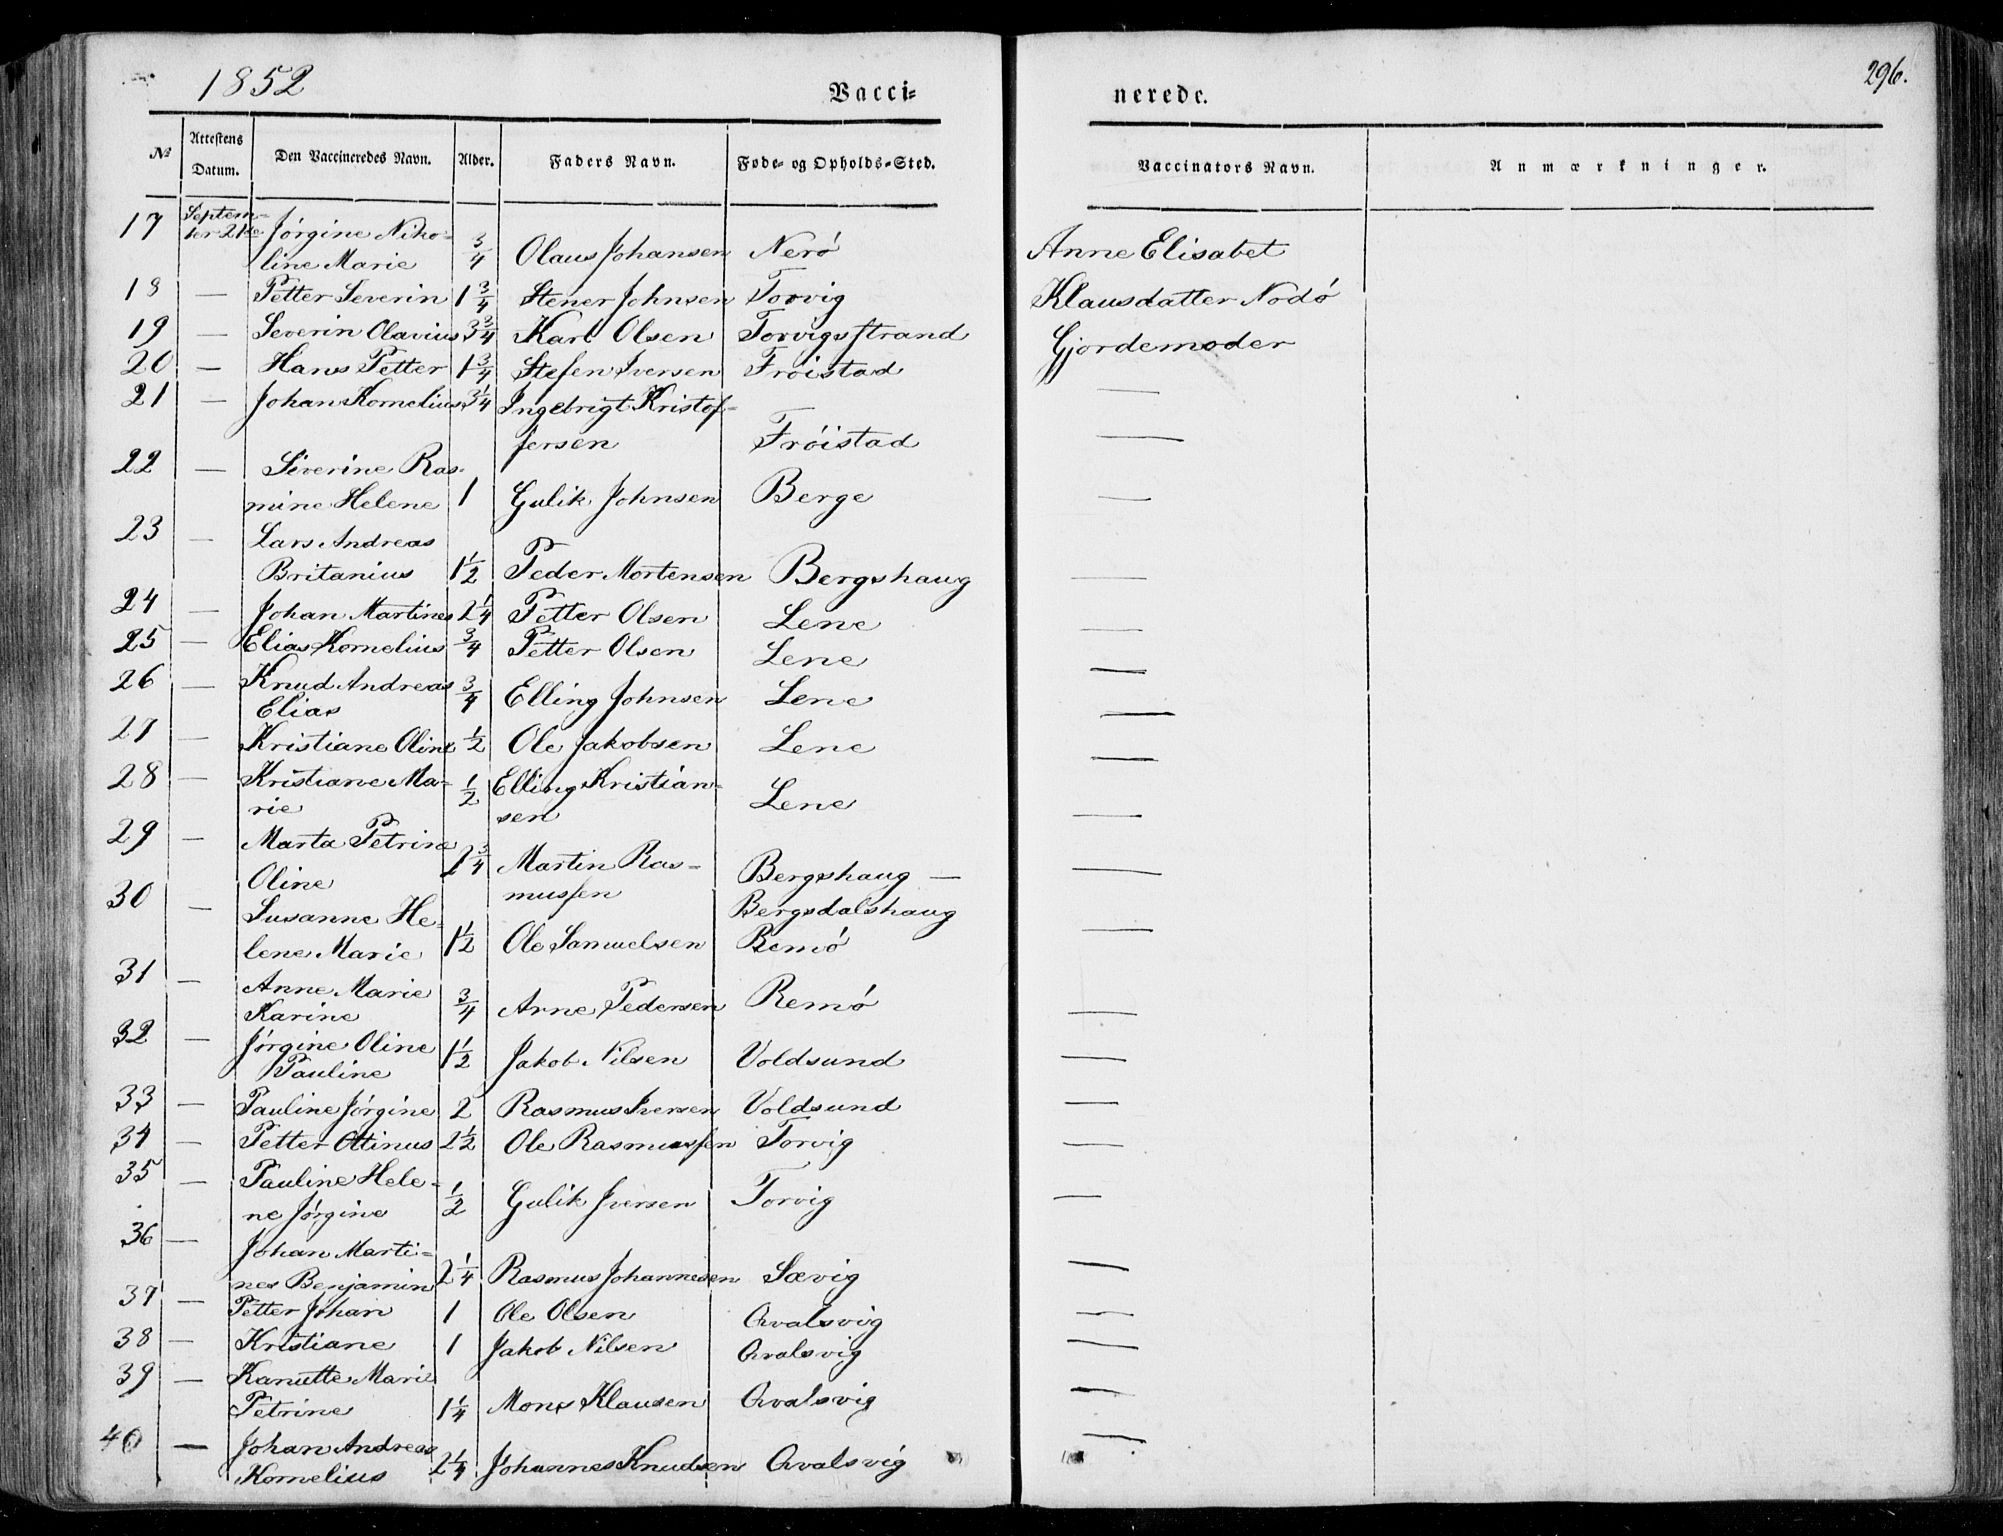 1852
Vacci=
nerede.
296.
No
Attestens Datum.
Den Vaccineredes Navn.
Alder.
Faders Navn.
Føde= og Opholds=Sted.
Vaccinators Navn.
Anmærkninger.
17 Septem= Jørgine Niko=
ber 21de line Marie 3/4 Olaus Johansen Nerø Anne Elisabet
18 — Petter Severin 1 3/4 Stener Johnsen Torvig Klausdatter Nodø
19 — Severin Olavius 3 3/4 Karl Olsen Torvigsstrand Gjordemoder
20 — Hans Petter 1 3/4 Stefen Iversen Frøistad —
21 — Johan Kornelius 3 1/4 Ingebrigt Kristof=
fersen Frøistad —
22 — Severine Ras=
mine Helene 1 Gulik Johnsen Berge —
23 — Lars Andreas
Britanius 1 1/2 Peder Mortensen Bergshaug —
24 — Johan Martines 2 1/4 Petter Olsen Lene —
25 — Elias Kornelius 3/4 Petter Olsen Lene —
26 — Knud Andreas 3/4 Elling Johnsen Lene —
Elias
27 — Kristiane Oline 1/2 Ole Jakobsen Lene —
28 — Kristiane Ma= 1/2 Elling Kristian= Lene —
rie sen
29 — Marta Petrine 2 3/4 Martin Ras= Bergshaug — —
Oline mussen Bergsdalshaug
30 — Susanne He=
lene Marie 1 1/2 Ole Samuelsen Remø —
31 — Anne Marie
Karine 3/4 Arne Pedersen Remø —
32 — Jørgine Oline 1 1/2 Jakob Nilsen Voldsund —
Pauline
33 — Pauline Jørgine 2 Rasmus Iversen Voldsund —
34 — Petter Ottinus 2 1/2 Ole Rasmussen Torvig —
35 — Pauline Hele=
ne Jørgine 1/2 Gulik Iversen Torvig —
36 — Johan Marti=
nes Benjamin 2 1/4 Rasmus Johannesen Sævig —
37 — Petter Johan 1 Ole Olsen Qvalsvig —
38 — Kristiane 1 Jakob Nilsen Qvalsvig —
39 — Kanutte Marie
Petrine 1 1/4 Mons Klausen Qvalsvig —
40 — Johan Andreas
Kornelius 2 1/4 Johannes Knudsen Qvalsvig —